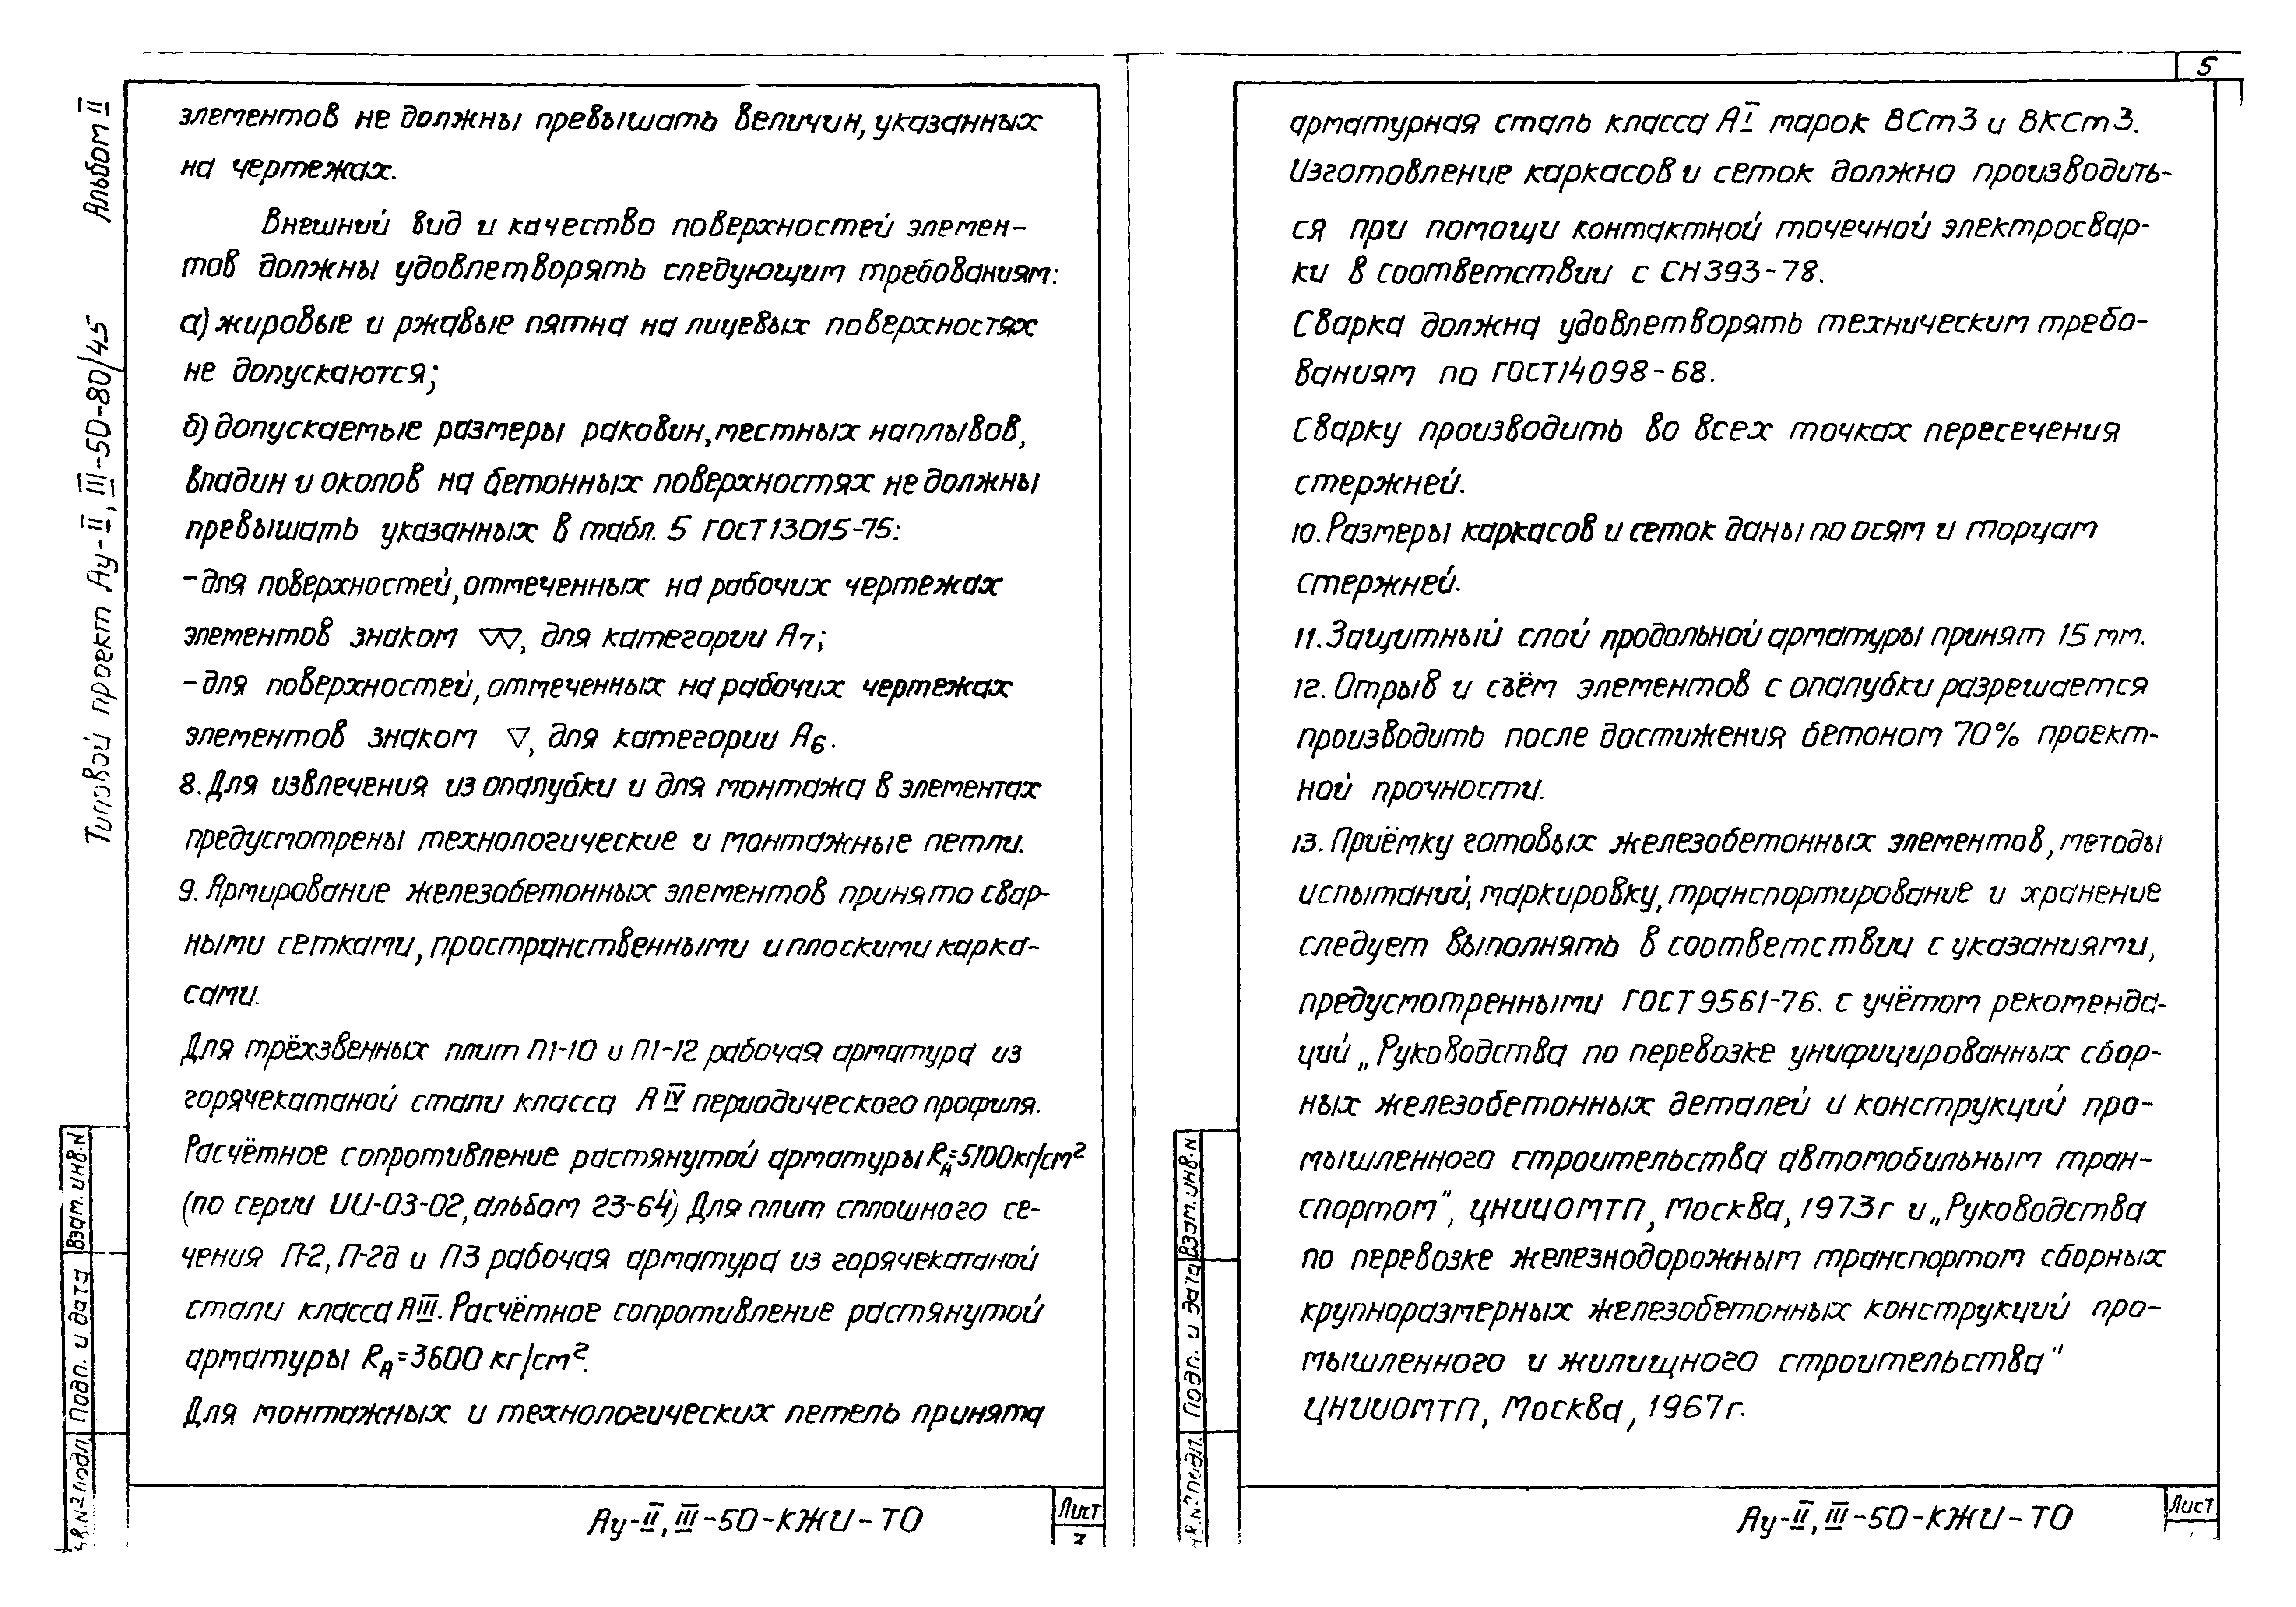 Альбом II
Типовой проект Ау-II, III-50-80/45
элементов не должны превышать величин, указанных
на чертежах.
Внешний вид и качество поверхностей элемен-
тов должны удовлетворять следующим требованиям:
а) жировые и ржавые пятна на лицевых поверхностях
не допускаются;
б) допускаемые размеры раковин, местных наплывов,
впадин и околов на бетонных поверхностях не должны
превышать указанных в табл. 5 ГОСТ 13015-75:
- для поверхностей, отмеченных на рабочих чертежах
элементов знаком ▽▽, для категории А7;
- для поверхностей, отмеченных на рабочих чертежах
элементов знаком ▽, для категории А6.
8. Для извлечения из опалубки и для монтажа в элементах
предусмотрены технологические и монтажные петли.
9. Армирование железобетонных элементов принято свар-
ными сетками, пространственными и плоскими карка-
сами.
Для трёхзвенных плит П1-10 и П1-12 рабочая арматура из
горячекатаной стали класса А IV периодического профиля.
Расчётное сопротивление растянутой арматуры RА=5100кг/см²
(по серии ИИ-03-02, альбом 23-64) Для плит сплошного се-
чения П-2, П-2д и П3 рабочая арматура из горячекатаной
стали класса АIII. Расчётное сопротивление растянутой
арматуры RА=3600 кг/см².
Для монтажных и технологических петель принята
Взам. инв. N
Подп. и дата
Ау-II, III-50-КЖИ-ТО
Лист
3
5
арматурная сталь класса АI марок ВСт3 и ВКСт3.
Изготовление каркасов и сеток должно производить-
ся при помощи контактной точечной электросвар-
ки в соответствии с СН393-78.
Сварка должна удовлетворять техническим требо-
ваниям по ГОСТ14098-68.
Сварку производить во всех точках пересечения
стержней.
10. Размеры каркасов и сеток даны по осям и торцам
стержней.
11. Защитный слой продольной арматуры принят 15 мм.
12. Отрыв и съём элементов с опалубки разрешается
производить после достижения бетоном 70% проект-
ной прочности.
13. Приёмку готовых железобетонных элементов, методы
испытаний, маркировку, транспортирование и хранение
следует выполнять в соответствии с указаниями,
предусмотренными ГОСТ 9561-76. с учётом рекоменда-
ций „Руководства по перевозке унифицированных сбор-
ных железобетонных деталей и конструкций про-
мышленного строительства автомобильным тран-
спортом", ЦНИИОМТП, Москва, 1973г и „Руководства
по перевозке железнодорожным транспортом сборных
крупноразмерных железобетонных конструкций про-
мышленного и жилищного строительства"
ЦНИИОМТП, Москва, 1967г.
Взам. инв. N
Подп. и дата
Ау-II, III-50-КЖИ-ТО
Лист